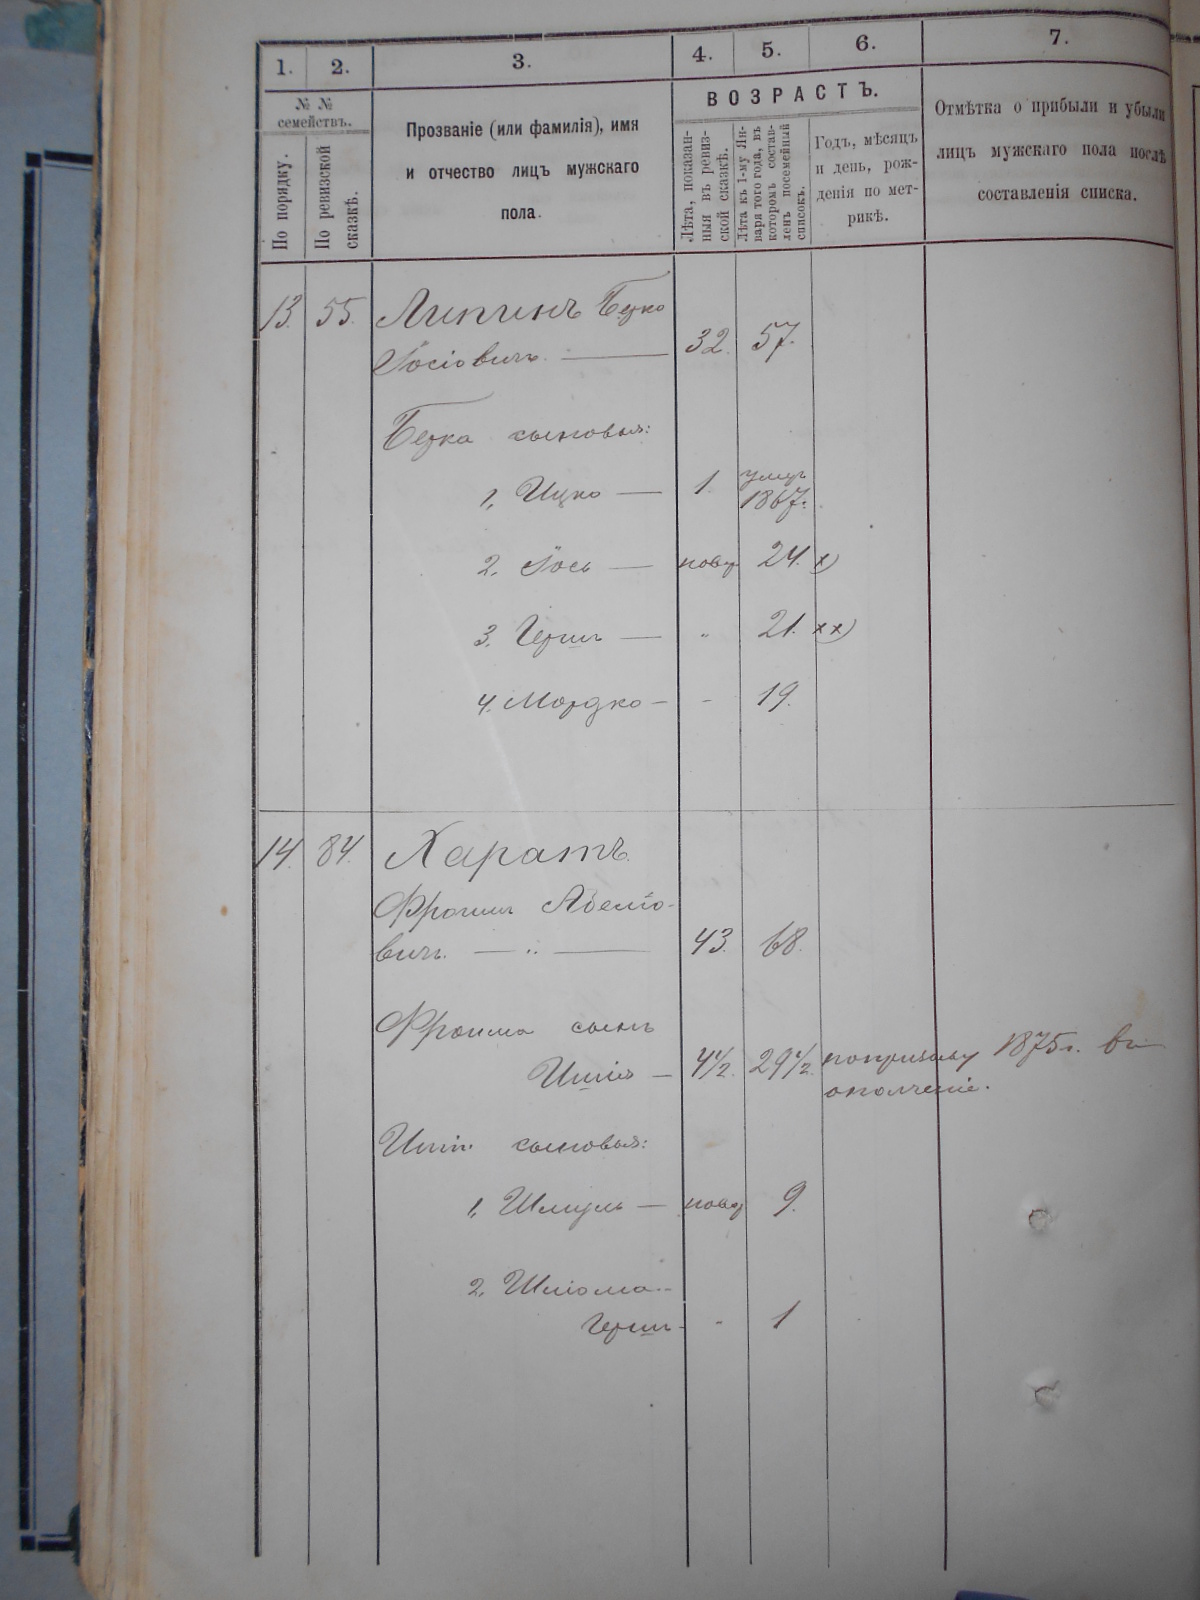 1. 2. 3. 4. 5. 6. 7.
№ № семействъ.
По порядку.
По ревизской сказкѣ.
Прозваніе (или фамилія), имя
и отчество лицъ мужскаго
пола.
ВОЗРАСТЪ.
Лѣта, показан-
ныя въ ревиз-
ской сказкѣ.
Лѣта къ 1-му Ян-
варя того года, въ
которомъ состав-
ленъ посемейный
списокъ.
Годъ, мѣсяцъ
и день, рож-
денія по мет-
рикѣ.
Отмѣтка о прибыли и убыли
лицъ мужскаго пола послѣ
составленія списка.
13. 55. Липинъ Берко
Іосіовичъ. — 32. 57.
Берка сыновья:
1, Ицко — 1. умеръ
1867.
2. Іось — новор 24. х)
3. Герш — " 21. хх)
4. Мордко — - 19.
14. 84. Харатъ
Фроим Абеліо-
вичъ. — " — 43. 68.
Фроима сынъ
Ишія — 4½. 29½. по призыву 1875 г. въ
ополченіе.
сыновья:
1, Шмуль — новор 9.
2, Шліома-
Герш - - 1